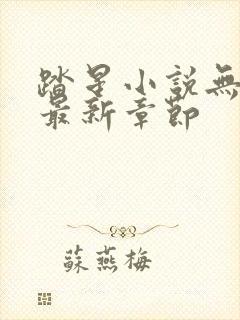 踏星小說無
最新章節
蘇燕梅